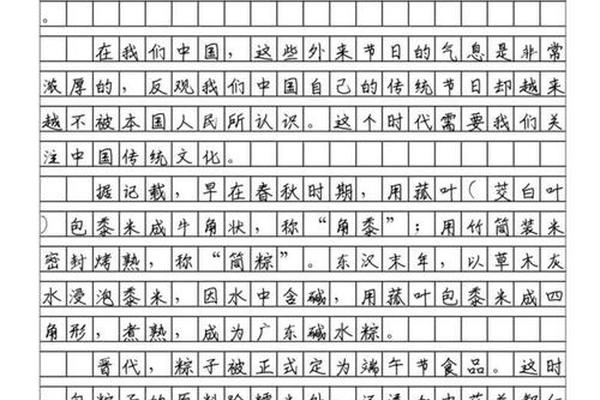 。
在我们中国，这些外来节日的气息是非常
浓厚的，反观我们中国自己的传统节日却越来
越不被本国人民所认识。这个时代需要我们关
注中国传统文化。
据记载，早在春秋时期，用菰叶（茭白叶
）包黍米成牛角状，称“角黍”；用竹筒装米
密封烤熟，称“筒粽”。东汉末年，以草木灰
水浸泡黍米，因水中含碱，用菰叶包黍米成四
角形，煮熟，成为广东碱水粽。
晋代，粽子被正式定为端午节食品。这时
，包粽子的原料除糯米外，还添加中药益智仁